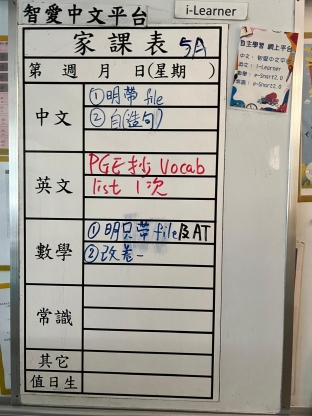 智愛中文平台
i-Learner
家課表 5A
第 週 月 日(星期 )
中文
①明帶 file
②自(造句)
英文
PGE抄 Vocab
list 1次
數學
①明只帶 file及AT
②改卷
常識
其它
值日生
自主學習 網上平台
中文: 智愛中文平台
英文: i-Learner
數學: e-Smart2.0
常識: e-Smart2.0